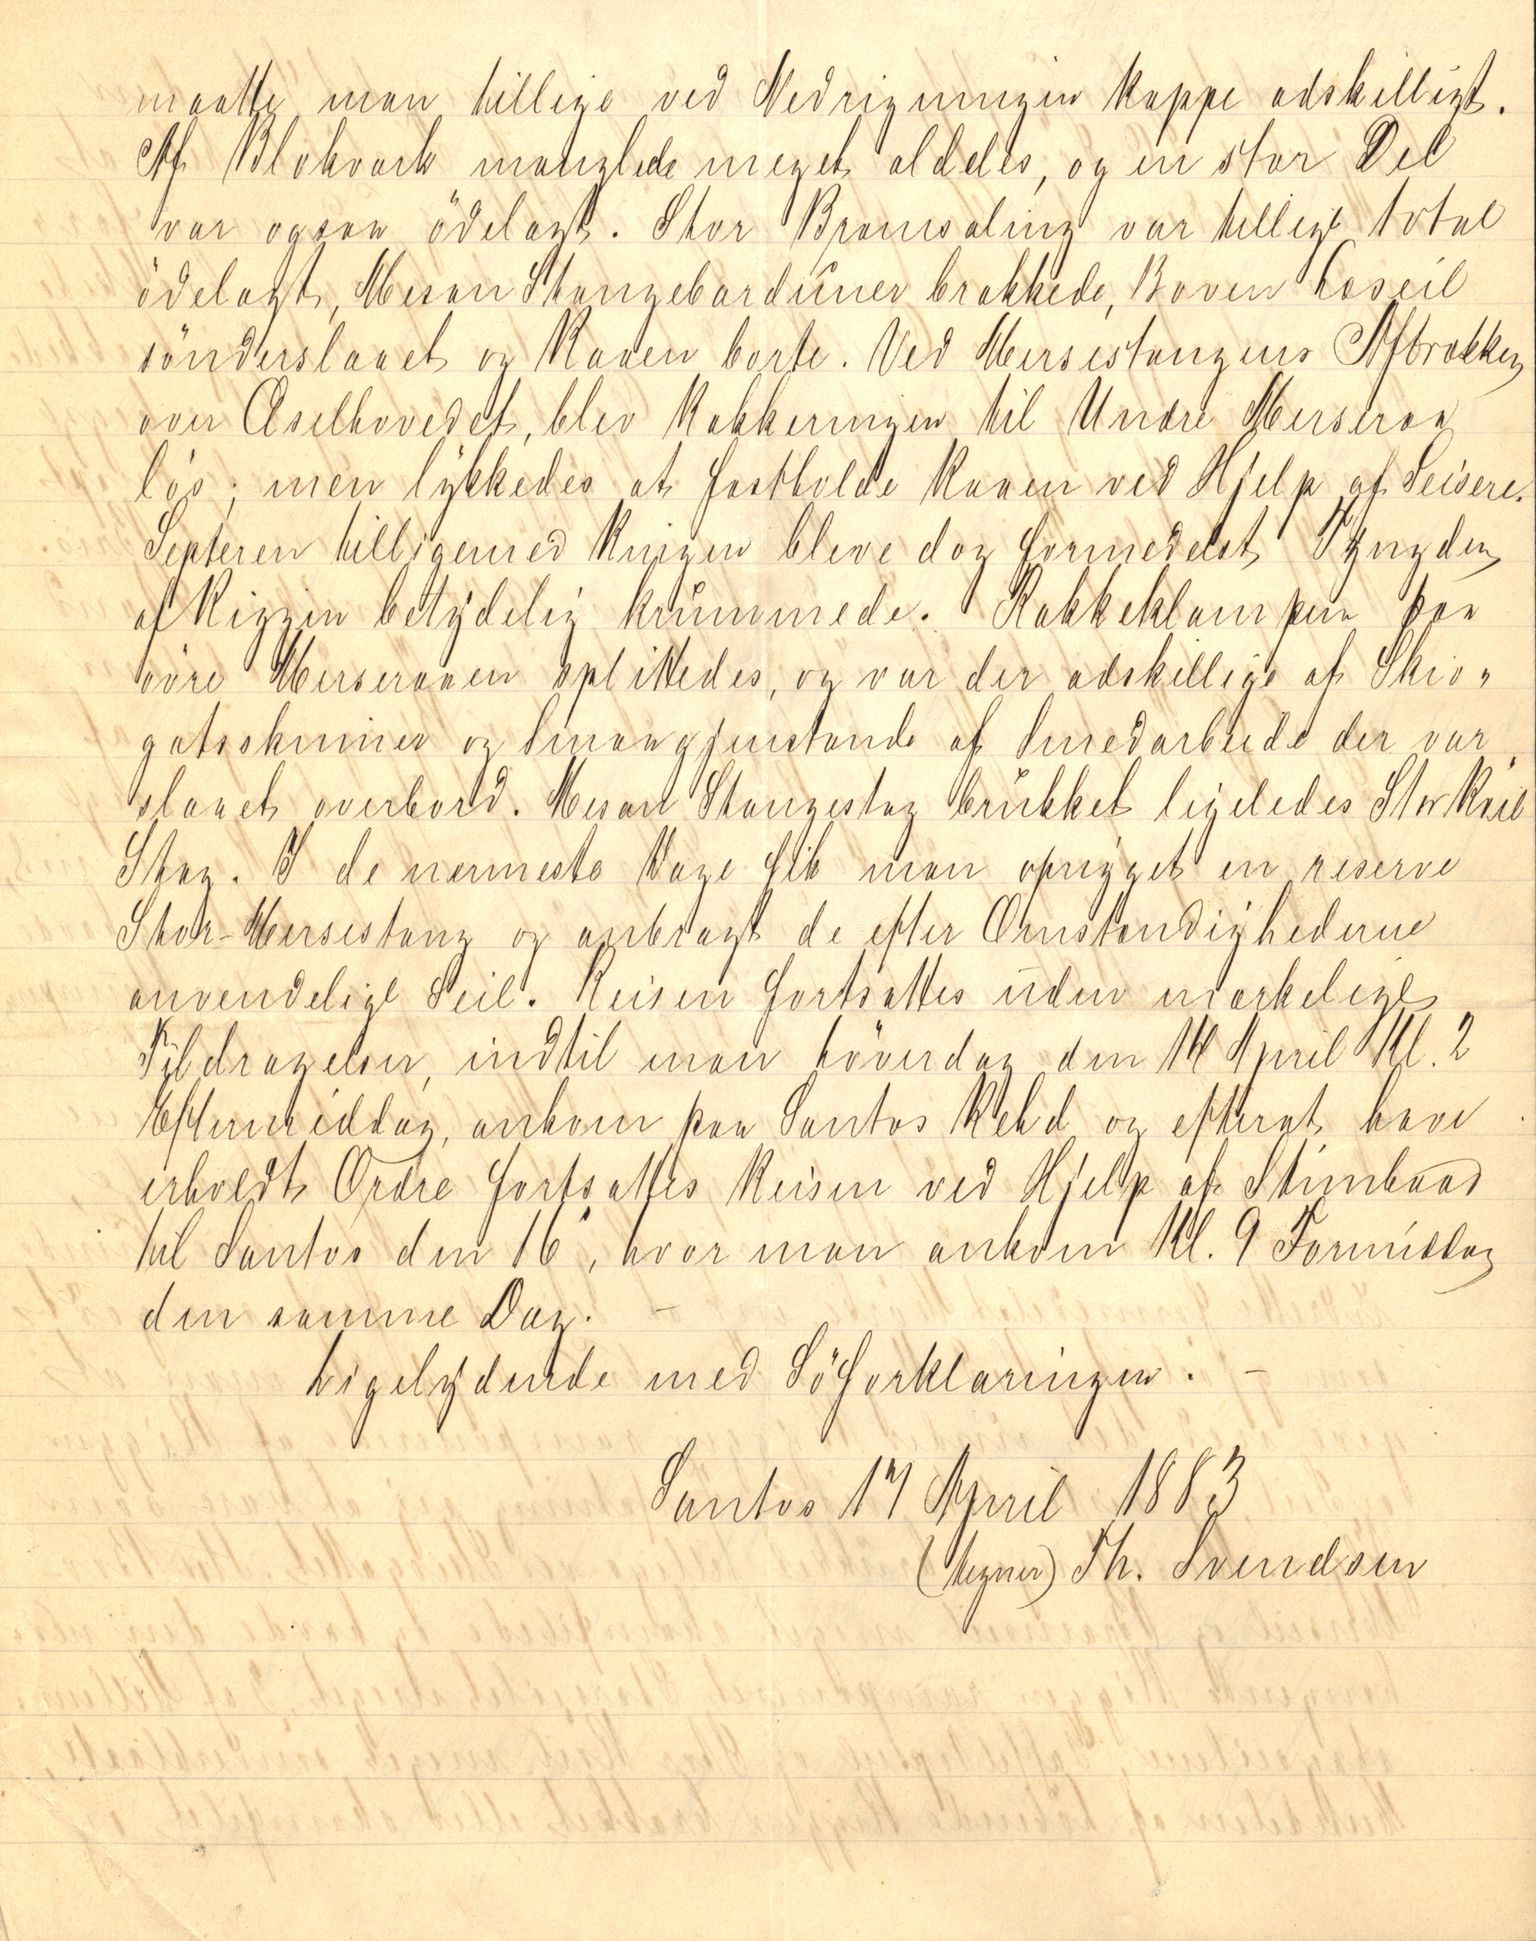 maatte man tillige ved Nedrigningen kappe adskilligt.
Af Blokværk manglede meget aldeles, og en stor Del
var ogsaa ödelagt. Stor Bramsaling var tillige total
ödelagt, Mesan Stangebarduner brækkede, Boven Læseil
sönderslaaet og Raaen borte. Ved Mersestangens Afbrækken
over Æselhovedet, blev Rakkeringen til Undre Merseraa
lös; men lykkedes at fastholde Raaen ved Hjelp af Seisere.
Septeren tilligemed Ringen bleve dog formedelst Tyngden
af Riggen betydelig krummede. Rakkeklampen paa
övre Merseraaen splittedes, og var der adskillige af Ski-
gatsskinner og Smaagjenstande af Smedarbeide der var
slaaet overbord. Mesan Stangestag brukket ligeledes Stor Röil
Stag. I de nærmeste Dage fik man oprigget en reserve
Stor-Mersestang og anbragt de efter Omstændighederne
anvendelige Seil. Reisen fortsattes uden mærkelige
Tildragelser, indtil man Löverdag den 14 April Kl. 2
Eftermiddag, ankom paa Santos Rehd og efterat have
erholdt Ordre fortsattes Reisen ved Hjelp af Stimbaad
til Santos den 16, hvor man ankom Kl. 9 Formiddag
den samme Dag. –
Ligelydende med Söforklaringen. –
Santos 17 April 1883
(tegner) Th. Svendsen